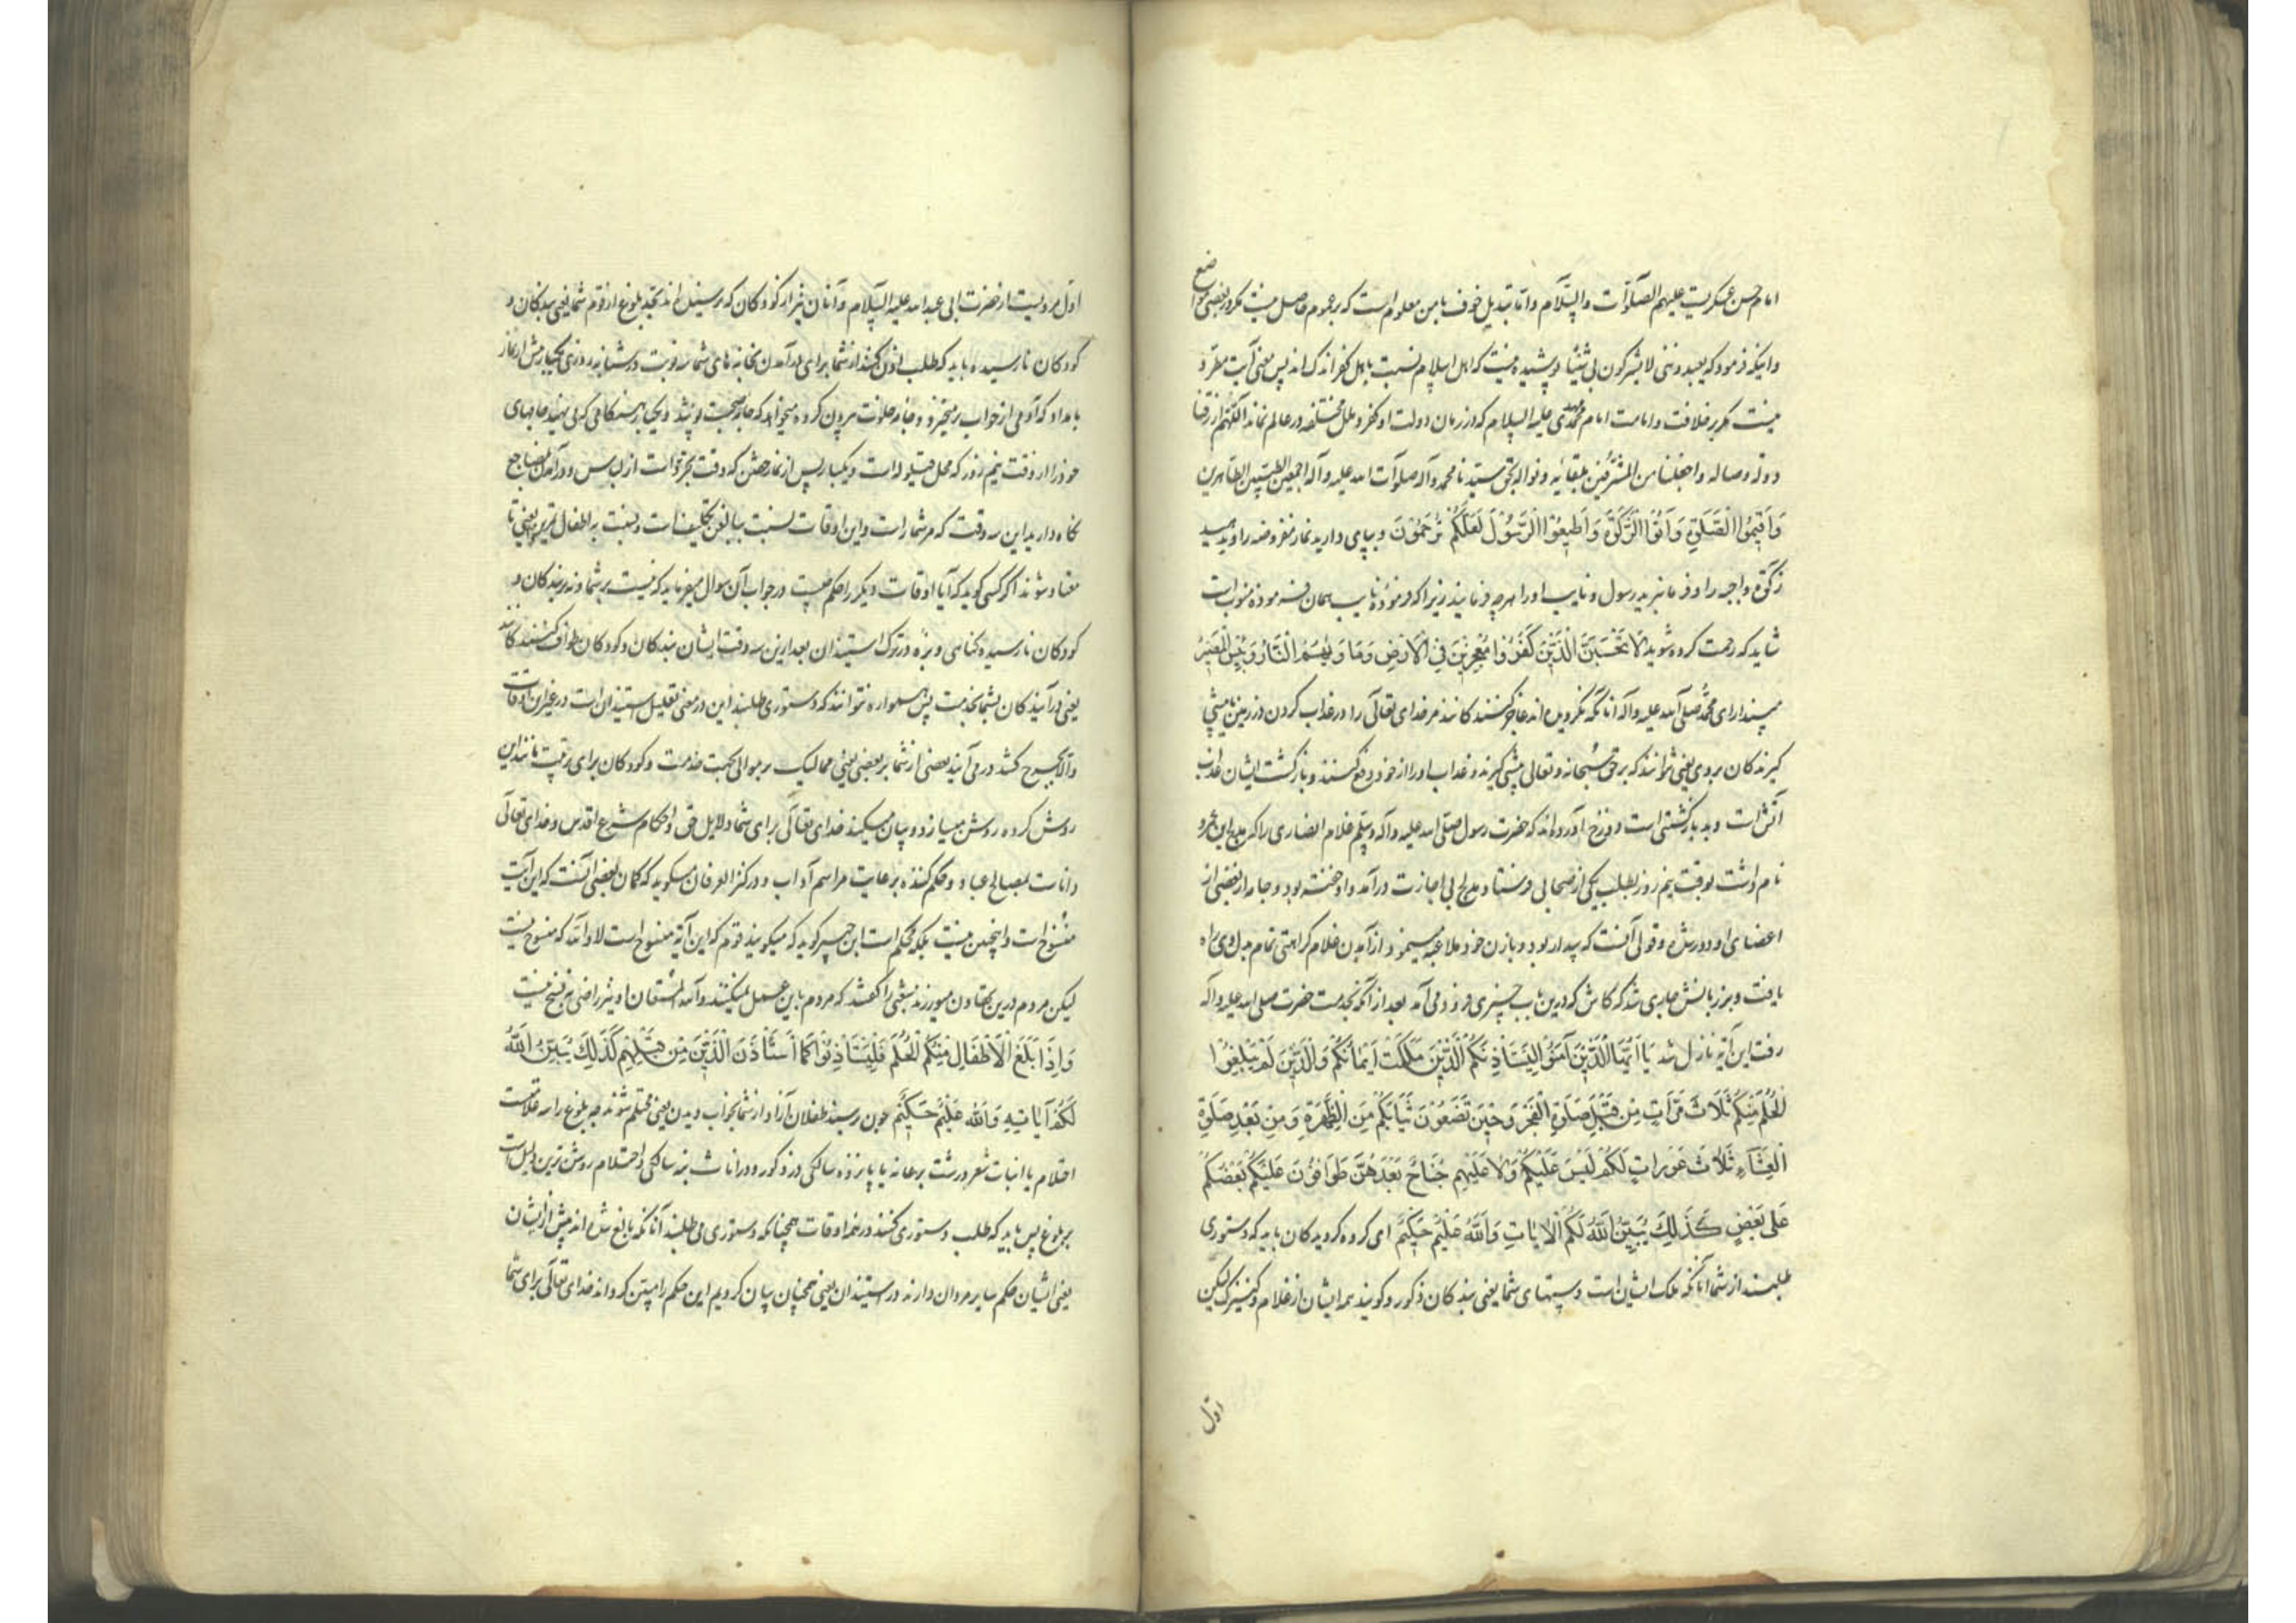 امام حسن عسکریست علیهم الصلوات والسلام واما تبدیل خوف بامن معلوم است که بر عموم حاصل نیست مکر در بعضی مواضع
واینکه فرموده که یعبدوننی لا یشرکون بی شیئا پوشیده نیست که اهل اسلام نسبت باهل کفر اندک اند پس معنی آیت مقرر
نیست مکر بر خلافت وامامت امام محمد مهدی علیه السلام که در زمان دولت او کفر وملل مختلفه در عالم نماند اللهم ارزقنا
دولة وصاله واجعلنا من المشرفین بلقائه ونواله بحق سیدنا محمد وآله صلوات الله علیه وآله اجمعین الطیبین الطاهرین
وَاَقِیمُوا الصَّلوةَ وَآتُوا الزَّکوةَ وَاَطِیعُوا الرَّسُولَ لَعَلَّکُمْ تُرْحَمُونَ وبپای دارید نماز مفروضه را وبدهید
زکوة واجبه را وفرمان برید رسول ونایب او را بهرچه فرمایند زیرا که فرموده نایب همان فرموده منوب است
شاید که رحمت کرده شوید لَا تَحْسَبَنَّ الَّذِینَ کَفَرُوا مُعْجِزِینَ فِی الْاَرْضِ وَمَاْوٰیهُمُ النَّارُ وَلَبِئْسَ الْمَصِیرُ
مپندار ای محمد صلی الله علیه وآله آنانکه نکرویده اند عاجز کنندکانند مر خدای تعالی را در عذاب کردن در زمین یا پیشی
کیرندکان بر وی یعنی نتوانند که بر حق سبحانه وتعالی پیشی کیرند وعذاب او را از خود دفع کنند وبازکشت ایشان بعذاب
آتش است وبد بازکشتی است دوزخ آورده اند که حضرت رسول صلی الله علیه وآله وسلم غلام انصاری را که مدلج ابن عمرو
نام داشت بوقت نیم روز بطلب یکی از صحابی فرستاد ومدلج بی اجازت درآمد واو خفته بود وجامه از بعضی از
اعضای او دور شده وقولی آنست که بیدار بود وبا زن خود ملاعبه مینمود از آمدن غلام کراهتی تمام بدل وی راه
یافت وبر زبانش جاری شد که کاش که درین باب چیزی فرود می آمد بعد از آنکه بخدمت حضرت صلی الله علیه وآله
رفت این آیه نازل شد یَا اَیُّهَا الَّذِینَ آمَنُوا لِیَسْتَاْذِنْکُمُ الَّذِینَ مَلَکَتْ اَیْمَانُکُمْ وَالَّذِینَ لَمْ یَبْلُغُوا
الْحُلُمَ مِنْکُمْ ثَلَاثَ مَرَّاتٍ مِنْ قَبْلِ صَلٰوةِ الْفَجْرِ وَحِینَ تَضَعُونَ ثِیَابَکُمْ مِنَ الظَّهِیرَةِ وَمِنْ بَعْدِ صَلٰوةِ
الْعِشَاءِ ثَلَاثُ عَوْرَاتٍ لَکُمْ لَیْسَ عَلَیْکُمْ وَلَا عَلَیْهِمْ جُنَاحٌ بَعْدَهُنَّ طَوَّافُونَ عَلَیْکُمْ بَعْضُکُمْ
عَلٰی بَعْضٍ کَذٰلِکَ یُبَیِّنُ اللّٰهُ لَکُمُ الْاٰیَاتِ وَاللّٰهُ عَلِیمٌ حَکِیمٌ ای کروه کرویدکان باید که دستوری
طلبند از شما آنانکه ملک ایشان است دستهای شما یعنی بندکان ذکور وکویند همه ایشان از غلام وکنیزک لیکن
اول
اول مرویست از حضرت ابی عبد الله علیه السلام وآنان نیز از کودکان که نرسیده اند بحد بلوغ از قوم شما یعنی بندکان و
کودکان نارسیده باید که طلب اذن کنند از شما برای درآمدن بخانه های شما سه نوبت در شبانه روزی یکبار پیش از نماز
بامداد که آدمی از خواب برمیخیزد وجامه خلوت بیرون کرده میخواهد که جامه صحبت پوشد ویکبار هنکامی که می نهید جامهای
خود را از وقت نیم روز که محل قیلوله است ویکبار پس از نماز خفتن که وقت تجرد است از لباس ودرآمدن بمضاجع
نکاه دارید این سه وقت که مر شما راست واین اوقات نسبت ببالغین تکلیف است ونسبت به اطفال تمرین یعنی تا
معتاد شوند اکر کسی کوید که آیا اوقات دیکر را حکم چیست در جواب آن سوال میفرماید که نیست بر شما ونه بر بندکان و
کودکان نارسیده کناهی وبزه در ترک استیذان بعد ازین سه وقت ایشان بندکان وکودکان طواف کنندکانند
یعنی درآیندکان بشما بخدمت پس همواره نتوانند که دستوری طلبند این در معنی تعلیل استیذان است در غیر این اوقات
والا بحرج کشد در می آیند بعضی از شما بر بعضی یعنی ممالیک بر موالی بجهت خدمت وکودکان برای تربیت مانند این
روش کرده روشن میسازد وبیان میکند خدای تعالی برای شما دلایل حق واحکام شرع اقدس وخدای تعالی
داناست بمصالح عباد وحکم کننده برعایت مراسم آداب ودر کنز العرفان میکوید که کمان بعضی آنست که این آیت
منسوخ است واینچنین نیست بلکه محکم است ابن جبیر کوید که میکویند قوم که این آیه منسوخ است لا والله که منسوخ نیست
لیکن مردم درین تهاون میورزند شعبی را کفتند که مردم باین عمل نمیکنند والله المستعان او نیز راضی به نسخ نیست
وَاِذَا بَلَغَ الْاَطْفَالُ مِنْکُمُ الْحُلُمَ فَلْیَسْتَاْذِنُوا کَمَا اسْتَاْذَنَ الَّذِینَ مِنْ قَبْلِهِمْ کَذٰلِکَ یُبَیِّنُ اللّٰهُ
لَکُمْ آیَاتِهِ وَاللّٰهُ عَلِیمٌ حَکِیمٌ چون رسند طفلان آزاد از شما بخواب دیدن یعنی محتلم شوند چه بلوغ را سه علامت است
احتلام یا انبات شعر درشت بر عانه یا پانزده سالکی در ذکور ودر اناث نه سالکی واحتلام روشن ترین دلیل است
بر بلوغ پس باید که طلب دستوری کنند در همه اوقات همچنانکه دستوری می طلبند آنانکه بالغ شده اند پیش از ایشان
یعنی ایشان حکم سایر مردان دارند در استیذان یعنی همچنان بیان کردیم این حکم را مبین کرداند خدای تعالی برای شما